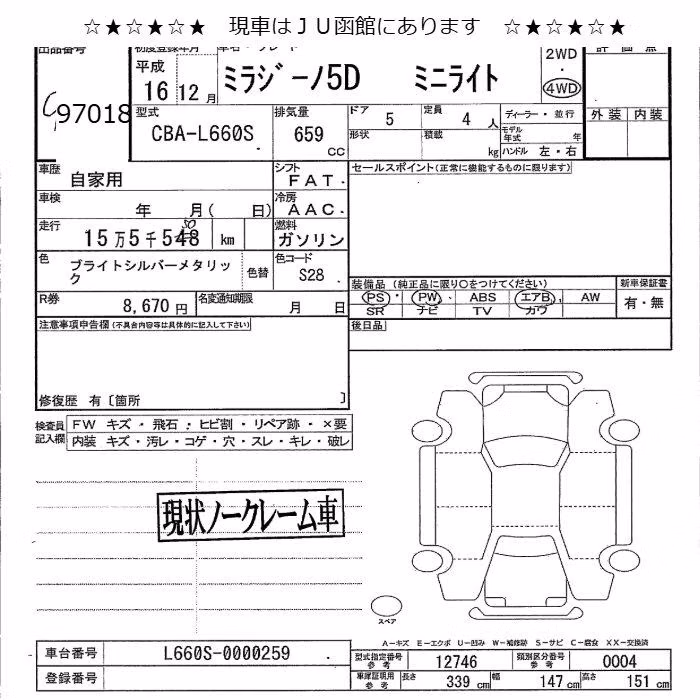 ☆★☆★☆★ 現車はＪＵ函館にあります ☆★☆★☆★
出品番号 初度登録年月 車名・グレード 評価点
97018
平成 16 12月
ミラジーノ5D ミニライト
2WD ・ 4WD
型式 CBA-L660S
排気量 659 CC
ドア 5 定員 4 人
形状 積載 kg
ディーラー・並行
モデル年式 年
ハンドル 左・右
外装 内装
車歴 自家用
シフト FAT
車検 年 月( 日)
冷房 AAC
走行 15万5千548 km
50
燃料 ガソリン
色 ブライトシルバーメタリック
色替
色コード S28
R券 8,670円
名変通知期限 月 日
セールスポイント(正常に機能するものに限ります)
装備品 (純正品に限り○をつけてください)
PS・PW・ABS エアB AW
SR ナビ TV カワ
新車保証書 有・無
後日品
注意事項申告欄(不具合内容等は具体的に記入して下さい)
修復歴 有〔箇所 〕
検査員記入欄
FW キズ・飛石・ヒビ割・リペア跡・×要
内装 キズ・汚レ・コゲ・穴・スレ・キレ・破レ
現状ノークレーム車
スペア
A-キズ E-エクボ U-凹み W-補修跡 S-サビ C-腐食 XX-交換済
車台番号 L660S-0000259
登録番号
型式指定番号参考 12746
類別区分番号参考 0004
車庫証明用参考 長さ 339 cm 幅 147 cm 高さ 151 cm